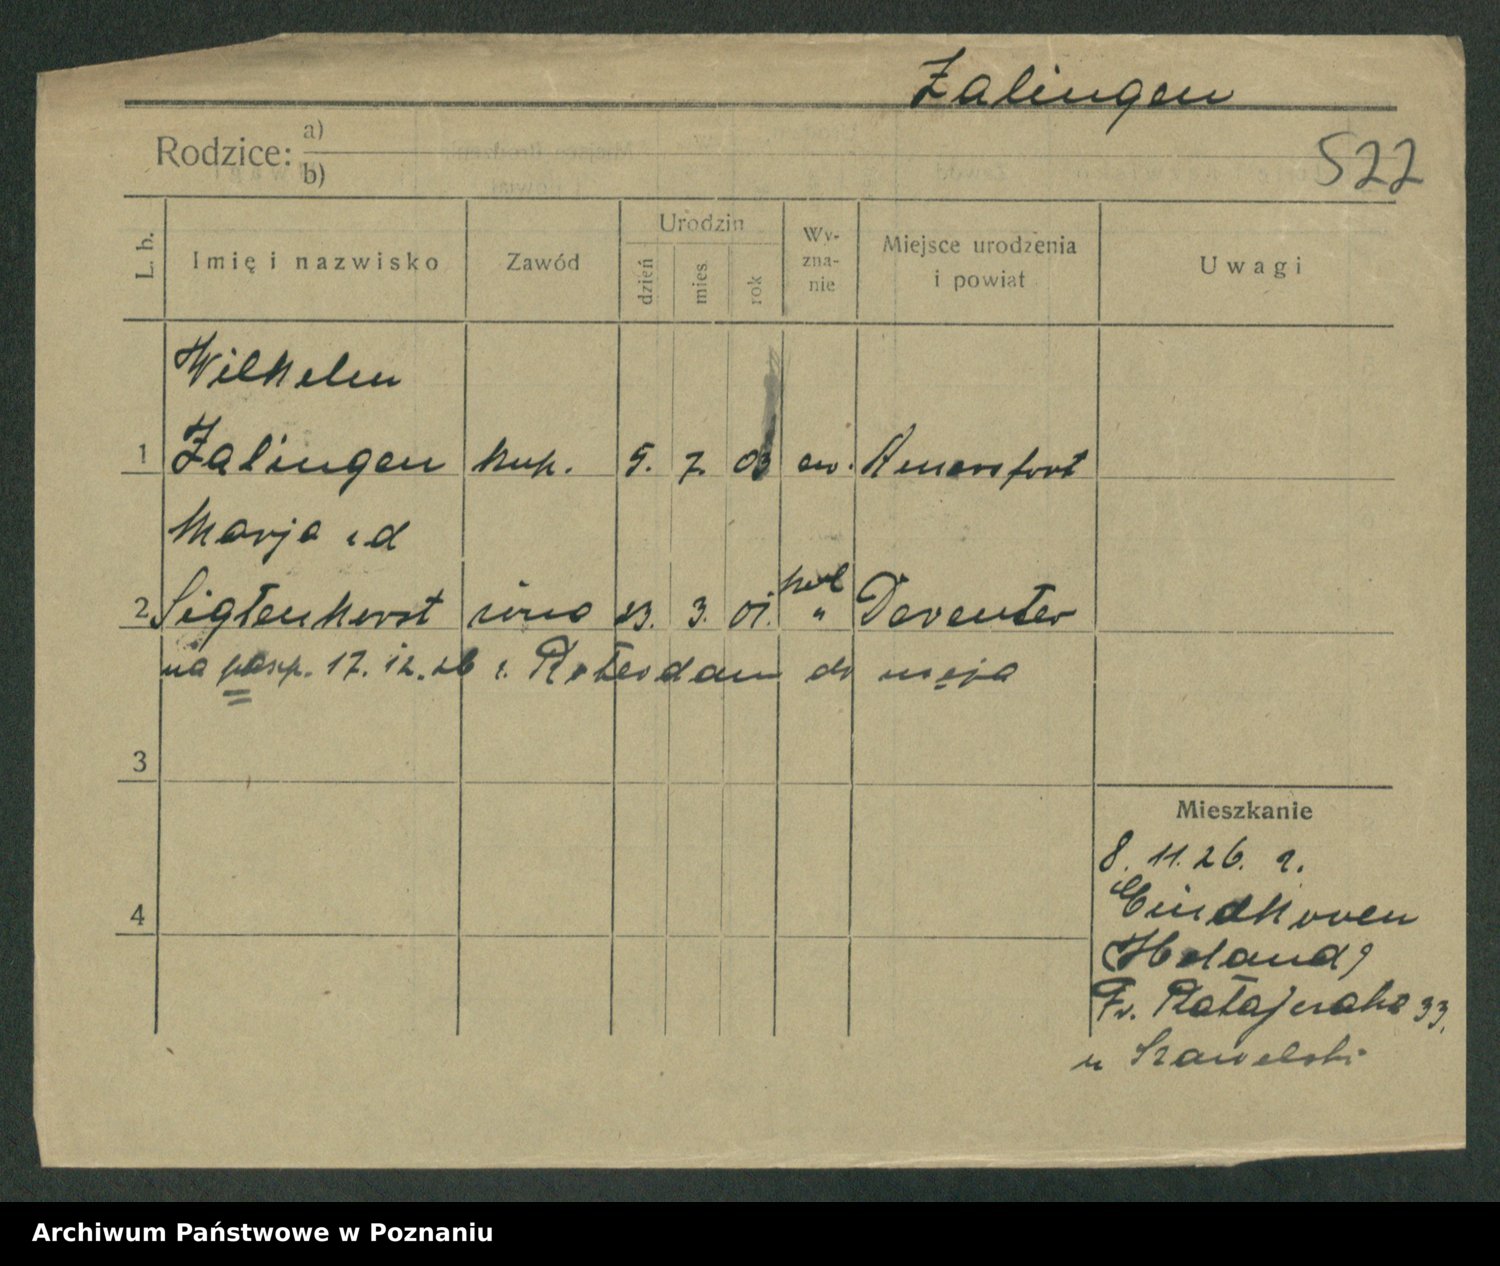 Zalingen
522
Rodzice: a)
b)
L. b. Imię i nazwisko Zawód Urodzin dzień mies. rok Wy-zna-nie Miejsce urodzenia i powiat Uwagi
Wilhelm
1 Zalingen kup. 5. 7. 03 ew. Amersfort
Marja z d
2. Sigtenhorst żona 23. 3. 01. " Deventer
na pasp. 17. 12. 26 r. Roterdam do męża
3
4
Mieszkanie
8. 11. 26. r.
Eindhoven
Holand,
Fr. Ratajczaka 33.
u Szawelski
Archiwum Państwowe w Poznaniu